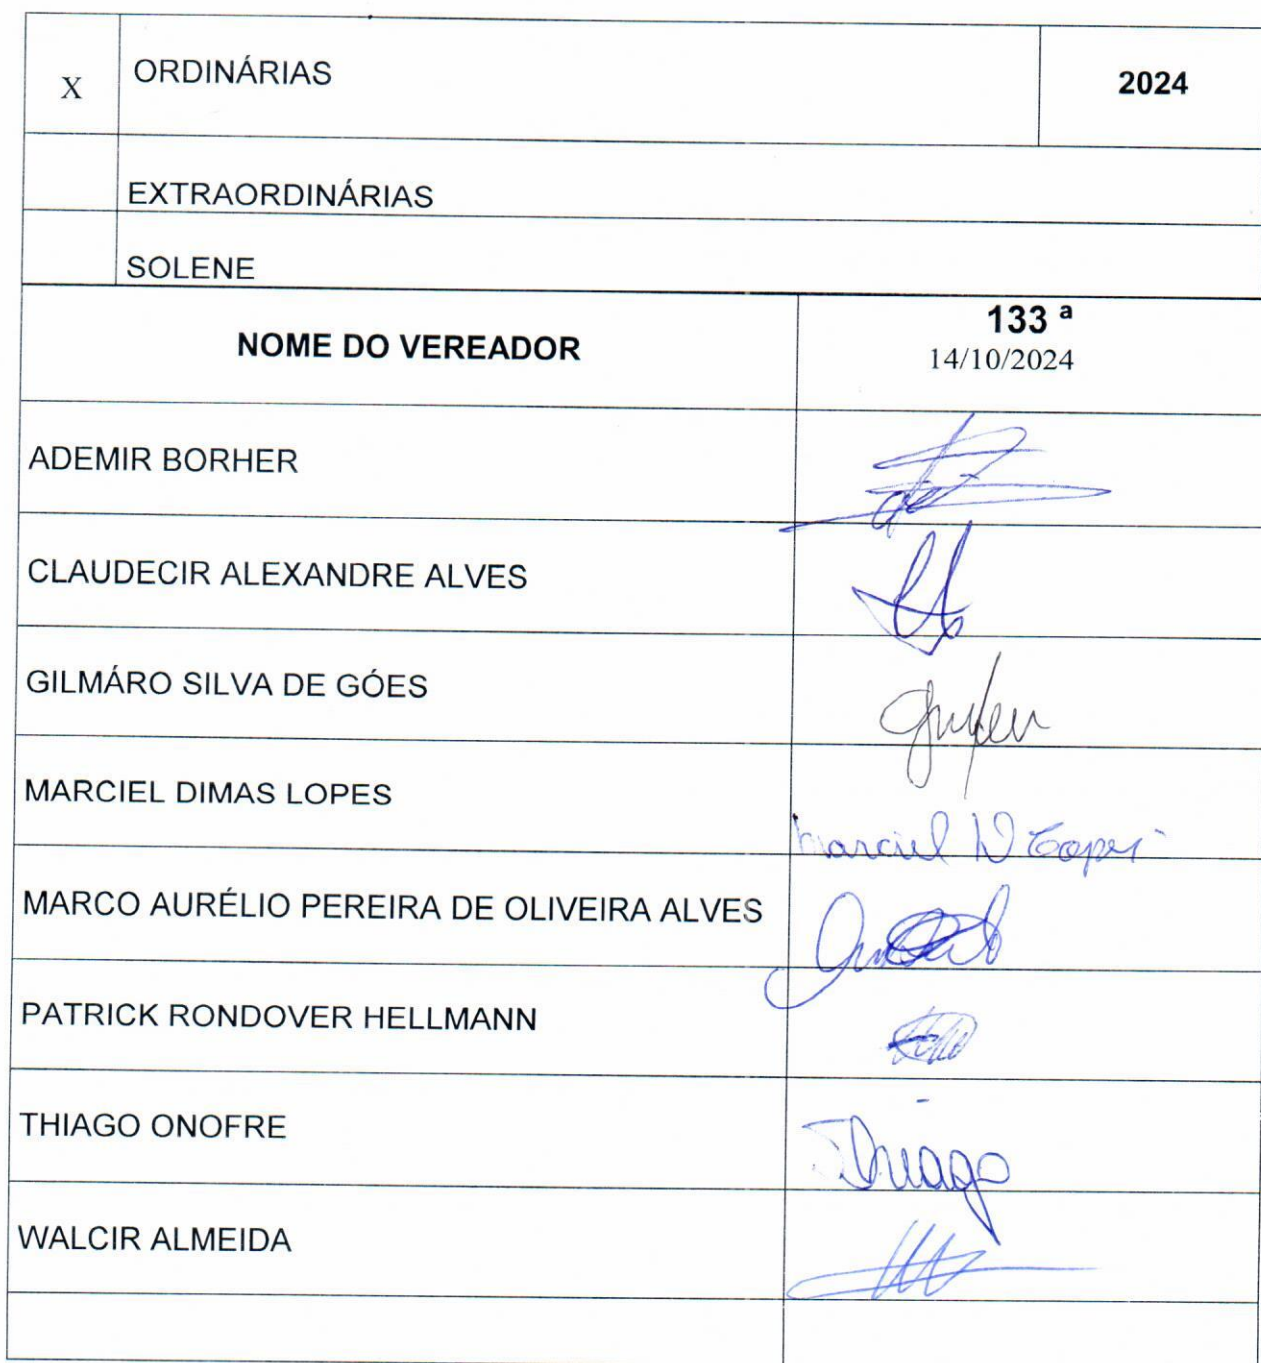 X ORDINÁRIAS 2024
EXTRAORDINÁRIAS
SOLENE
NOME DO VEREADOR 133 ª
14/10/2024
ADEMIR BORHER
CLAUDECIR ALEXANDRE ALVES
GILMÁRO SILVA DE GÓES
MARCIEL DIMAS LOPES
Marciel D Lopes
MARCO AURÉLIO PEREIRA DE OLIVEIRA ALVES
PATRICK RONDOVER HELLMANN
THIAGO ONOFRE
Thiago
WALCIR ALMEIDA